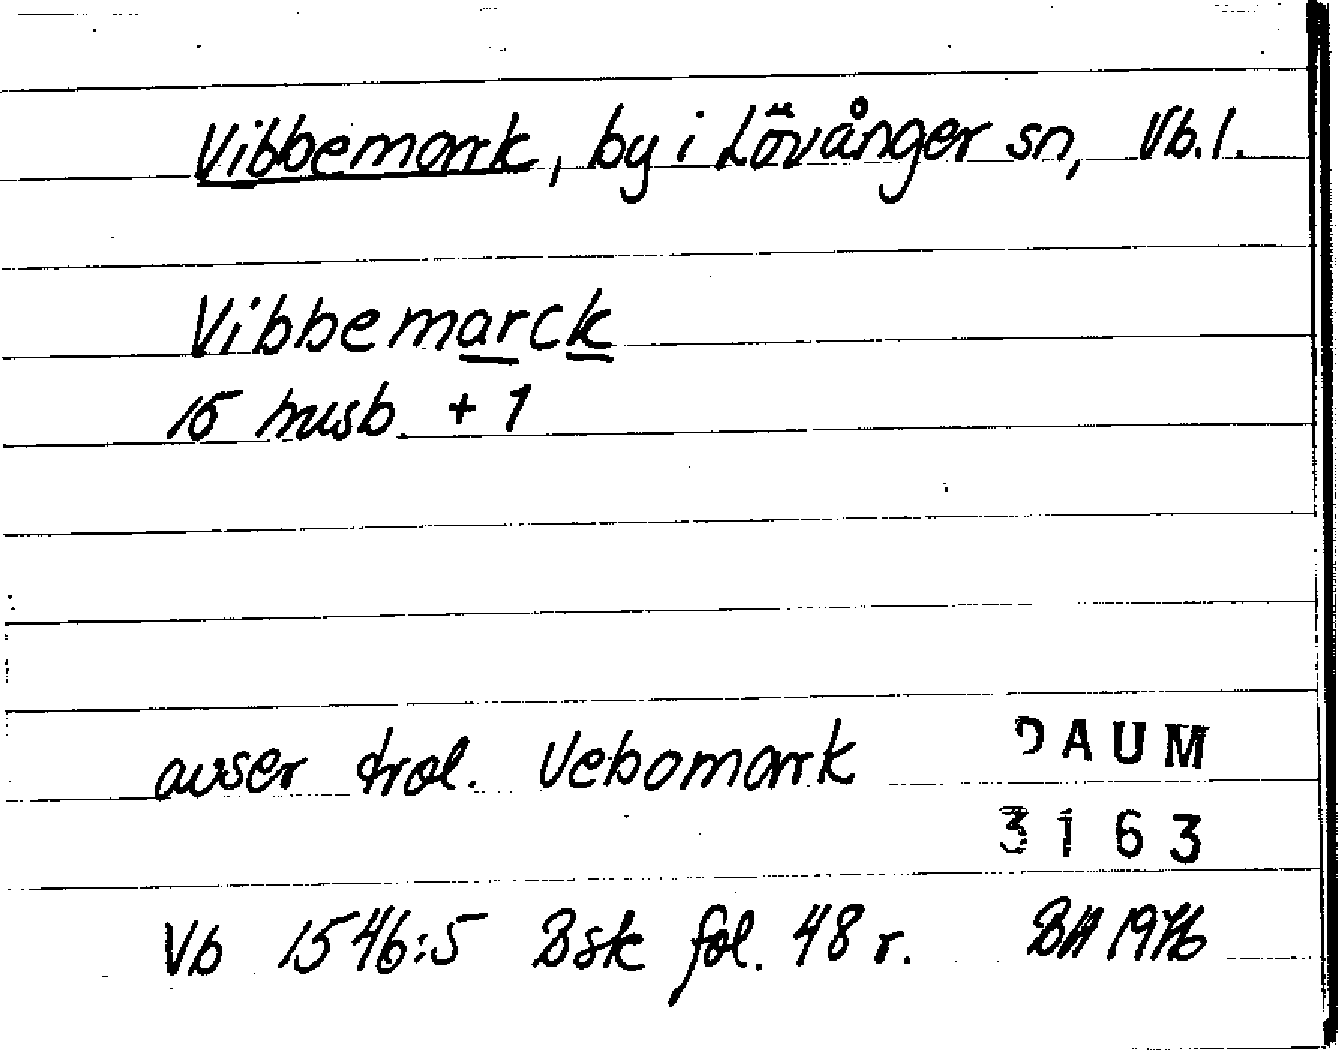 Vibbemark, by i Lövånger sn, Vb.l.
Vibbemarck
15 husb. + 1
avser trol. Vebomark
DAUM
3163
Vb 1546:5 Bsk fol. 48 r. BH 1976